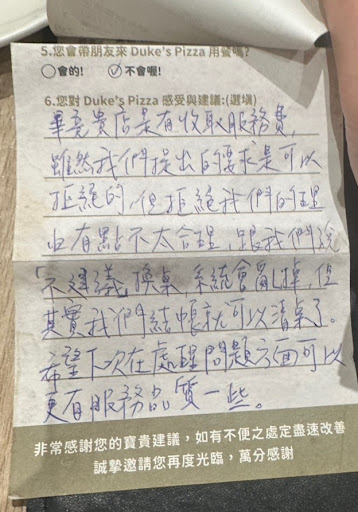 5.您會帶朋友來 Duke's Pizza 用餐嗎?
會的! 不會喔!
6.您對 Duke's Pizza 感受與建議:(選填)
畢竟貴店是有收取服務費,
雖然我們提出的要求是可以
拒絕的,但拒絕我們的理
由有點不太合理,跟我們說
「不建議換桌,系統會亂掉,但
其實我們結帳就可以清桌了。
希望下次在處理問題方面可以
更有服務品質一些。
非常感謝您的寶貴建議,如有不便之處定盡速改善
誠摯邀請您再度光臨,萬分感謝